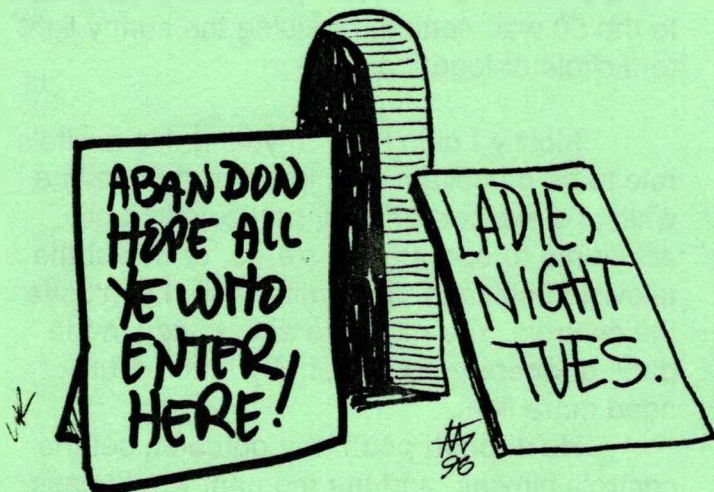 ABANDON
HOPE ALL
YE WHO
ENTER
HERE!
LADIES
NIGHT
TUES.